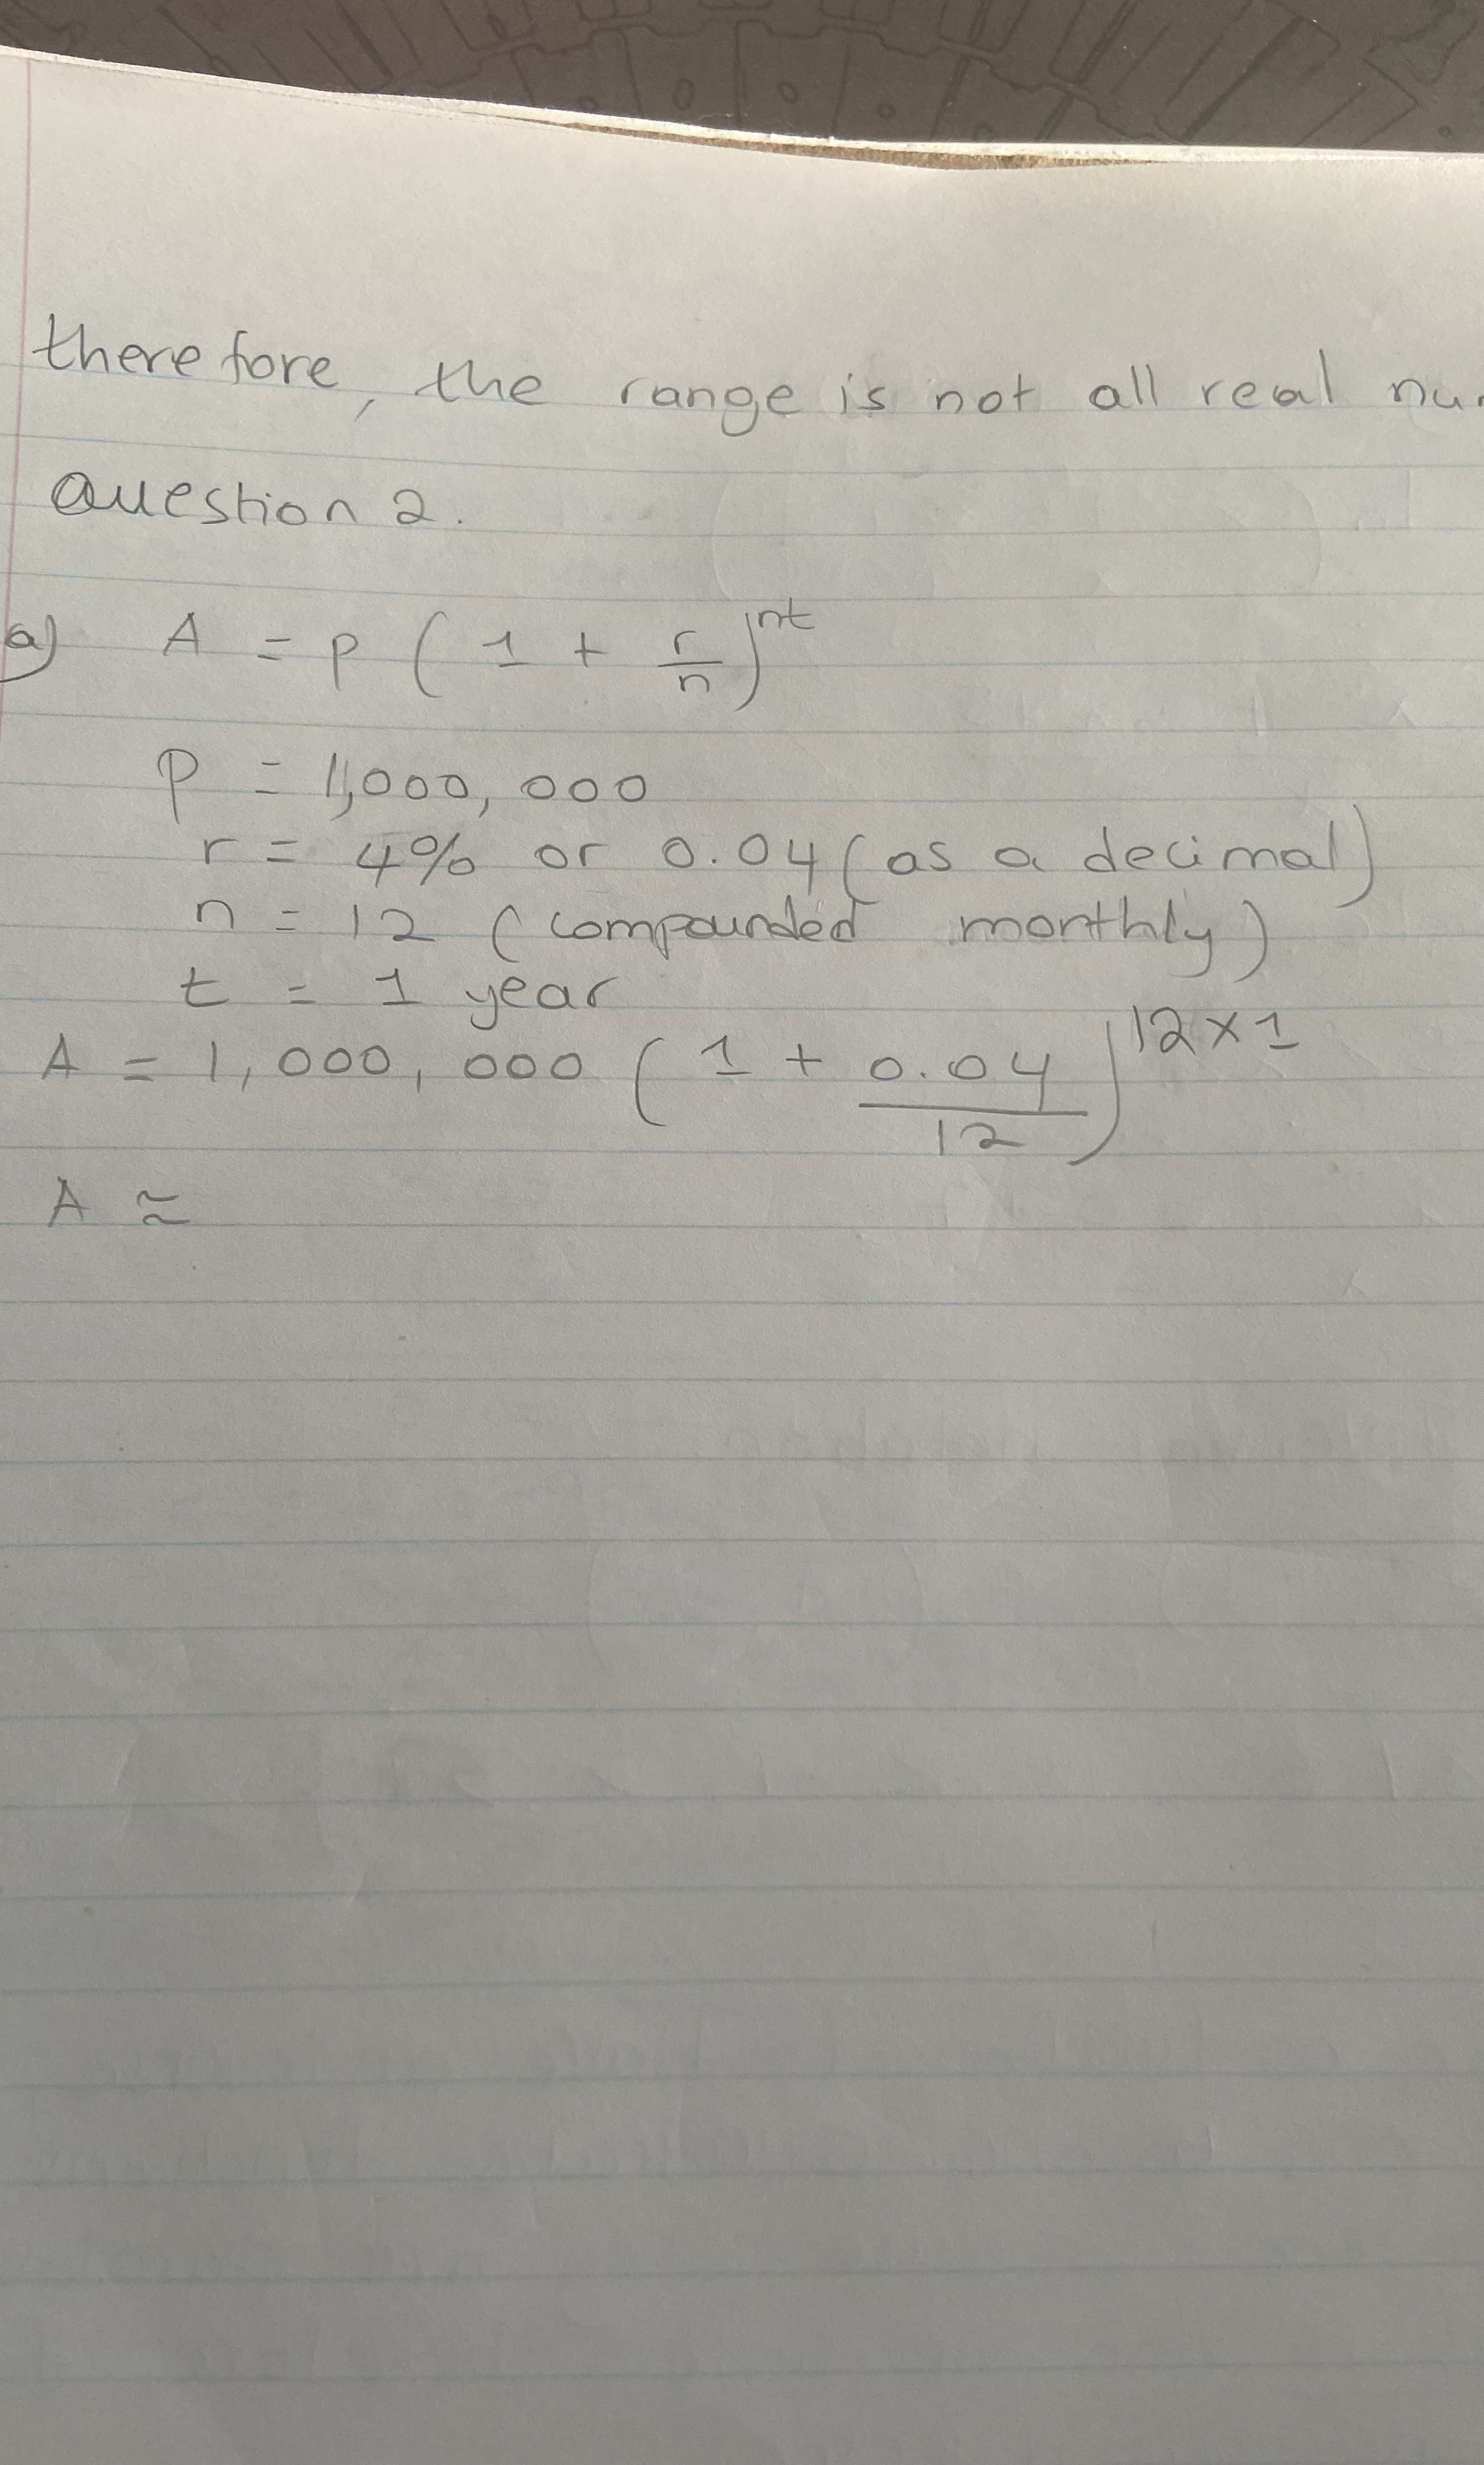 therefore, the range is not all real
Question 2.
a) A = p (1 + r/n)^nt
P = 1,000,000
r = 4% or 0.04 (as a decimal)
n = 12 (compounded monthly)
t = 1 year
A = 1,000,000 (1 + 0.04/12)^12×1
A ≈